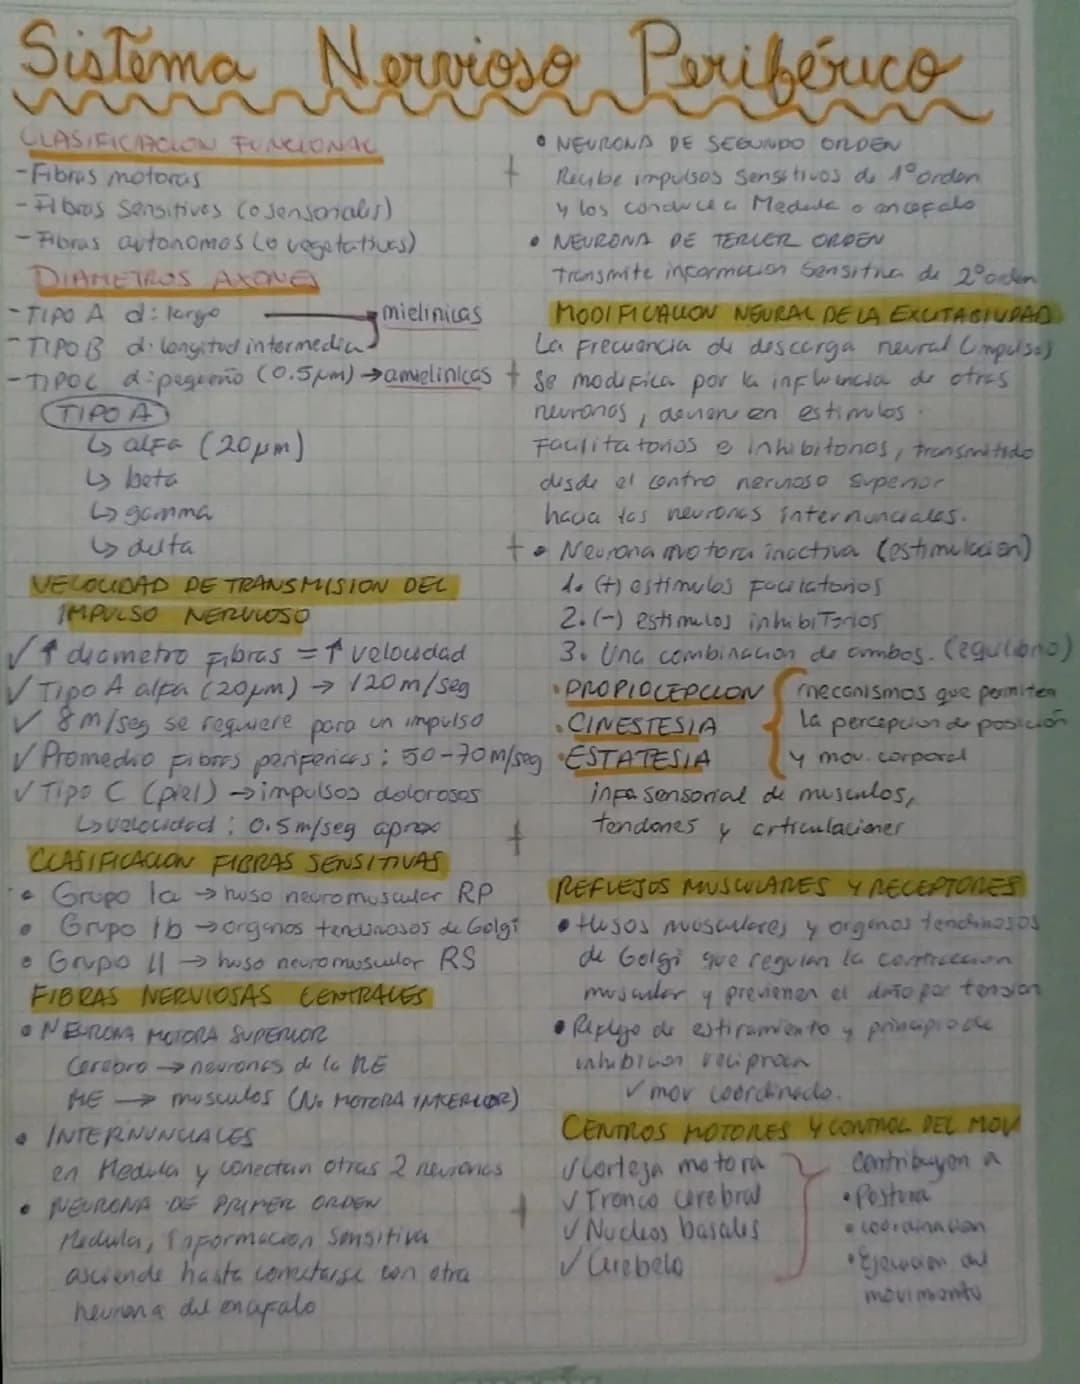 Sistema Nervioso Periférico
CLASIFICACION FUNCIONAL
- Fibras motoras
- Fibras Sensitivas (o sensoriales)
- Fibras autonomas (o vegetativas)
DIAMETROS AXONES
- TIPO A d: largo → mielinicas
- TIPO B d: longitud intermedia
- TIPO C d: pequeño (0.5 µm) → amielinicas
TIPO A
↳ alfa (20µm)
↳ beta
↳ gamma
↳ delta
VELOCIDAD DE TRANSMISION DEL
IMPULSO NERVIOSO
✓ ↑ diametro fibras = ↑ velocidad
✓ Tipo A alfa (20µm) → 120 m/seg
✓ 8 m/seg se requiere para un impulso
✓ Promedio fibras perifericas: 50-70 m/seg
✓ Tipo C (piel) → impulsos dolorosos
↳ velocidad: 0.5 m/seg aprox
CLASIFICACION FIBRAS SENSITIVAS
• Grupo Ia → huso neuromuscular RP
• Grupo Ib → organos tendinosos de Golgi
• Grupo II → huso neuromuscular RS
FIBRAS NERVIOSAS CENTRALES
• NEURONA MOTORA SUPERIOR
Cerebro → neuronas de la ME
ME → musculos (N. MOTORA INFERIOR)
• INTERNUNCIALES
en Medula y conectan otras 2 neuronas
• NEURONA DE PRIMER ORDEN
Medula, Informacion Sensitiva
asciende hasta conectarse con otra
neurona del encefalo
• NEURONA DE SEGUNDO ORDEN
Recibe impulsos Sensitivos de 1º orden
y los conduce a Medula o encefalo
• NEURONA DE TERCER ORDEN
transmite informacion Sensitiva de 2º orden
MODIFICACION NEURAL DE LA EXCITABILIDAD
La frecuencia de descarga neural (impulso)
Se modifica por la influencia de otras
neuronas, devienen en estimulos
Facilitatorios e inhibitorios, transmitido
desde el centro nervioso Superior
hacia las neuronas internunciales.
• Neurona motora inactiva (estimulacion)
1. (+) estimulos facilatorios
2. (-) estimulos inhibitorios
3. Una combinacion de ambos. (equilibrio)
• PROPIOCEPCION
• CINESTESIA
• ESTATESIA
mecanismos que permiten
la percepcion de posición
y mov. corporal
info sensorial de musculos,
tendones y articulaciones
REFLEJOS MUSCULARES Y RECEPTORES
• Husos musculares y organos tendinosos
de Golgi que regulan la contraccion
muscular y previenen el daño por tension
• Reflejo de estiramiento y principio de
inhibicion reciproca
✓ mov coordinado.
CENTROS MOTORES Y CONTROL DEL MOV
✓ Corteza motora
✓ Tronco cerebral
✓ Nucleos basales
✓ Cerebelo
Contribuyen a
• Postura
• coordinacion
• Ejecucion del
movimiento